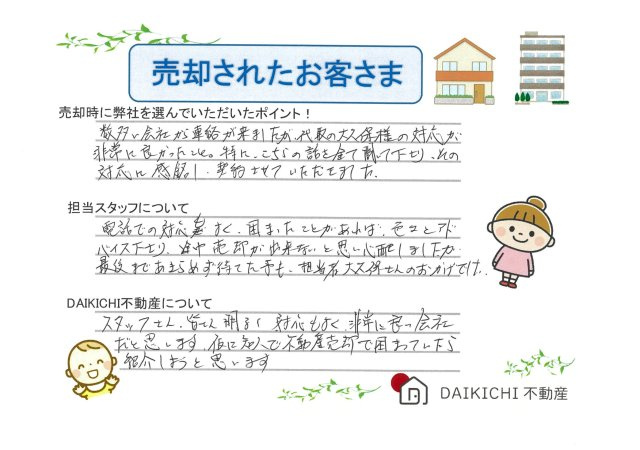 売却されたお客さま
売却時に弊社を選んでいただいたポイント！
数多い会社から連絡が来ましたが、代取の大久保様の対応が
非常に良かったこと。特に、こちらの話を全て聞いて下さり、その
対応に感銘し、契約させていただきました。
担当スタッフについて
電話での対応もよく、困ったことがあれば、色々とアド
バイス下さり、途中売却が出来ないと思い心配しましたが
最後まであきらめず待てた事も、担当者大久保さんのおかげです。
DAIKICHI不動産について
スタッフさん、皆さん明るく対応もよく、非常に良い会社
だと思います。仮に知人で不動産売却で困っていたら
紹介しようと思います
DAIKICHI 不動産